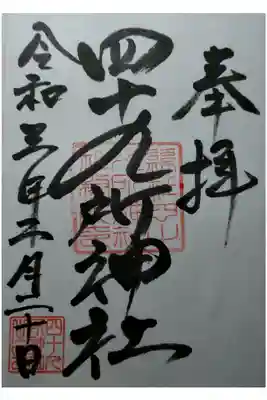 奉拝
四十九所神社
令和三年六月二十日